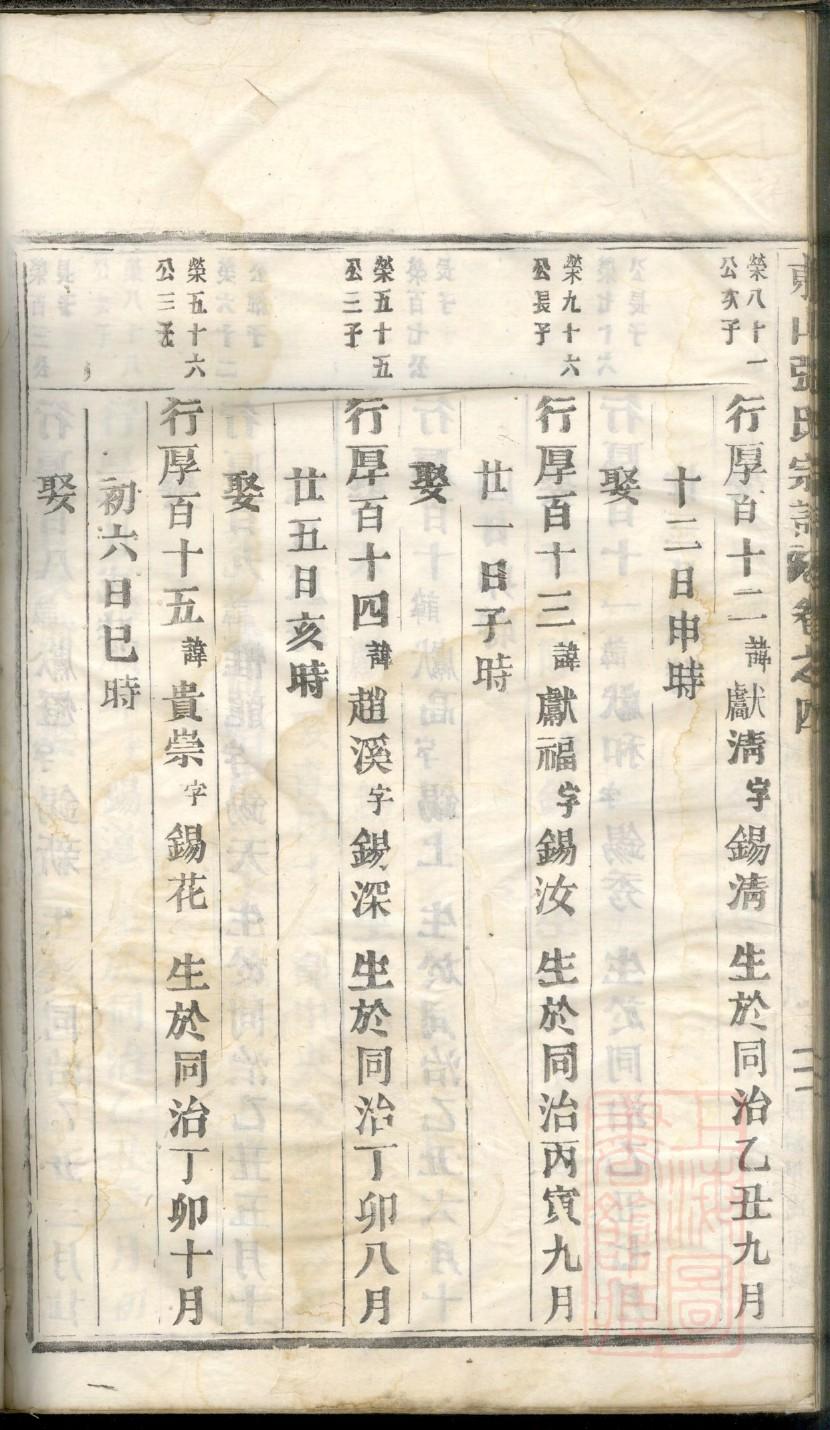 東山張氏宗譜 卷之四
榮八十一
公次子
行厚百十二諱獻淸字錫淸 生於同治乙丑九月
十二日申時
娶
榮九十六
公長子
行厚百十三諱獻福字錫汝 生於同治丙寅九月
廿一日子時
娶
榮五十五
公三子
行厚百十四諱趙溪字錫深 生於同治丁卯八月
廿五日亥時
娶
榮五十六
公三子
行厚百十五諱貴崇字錫花 生於同治丁卯十月
初六日巳時
娶